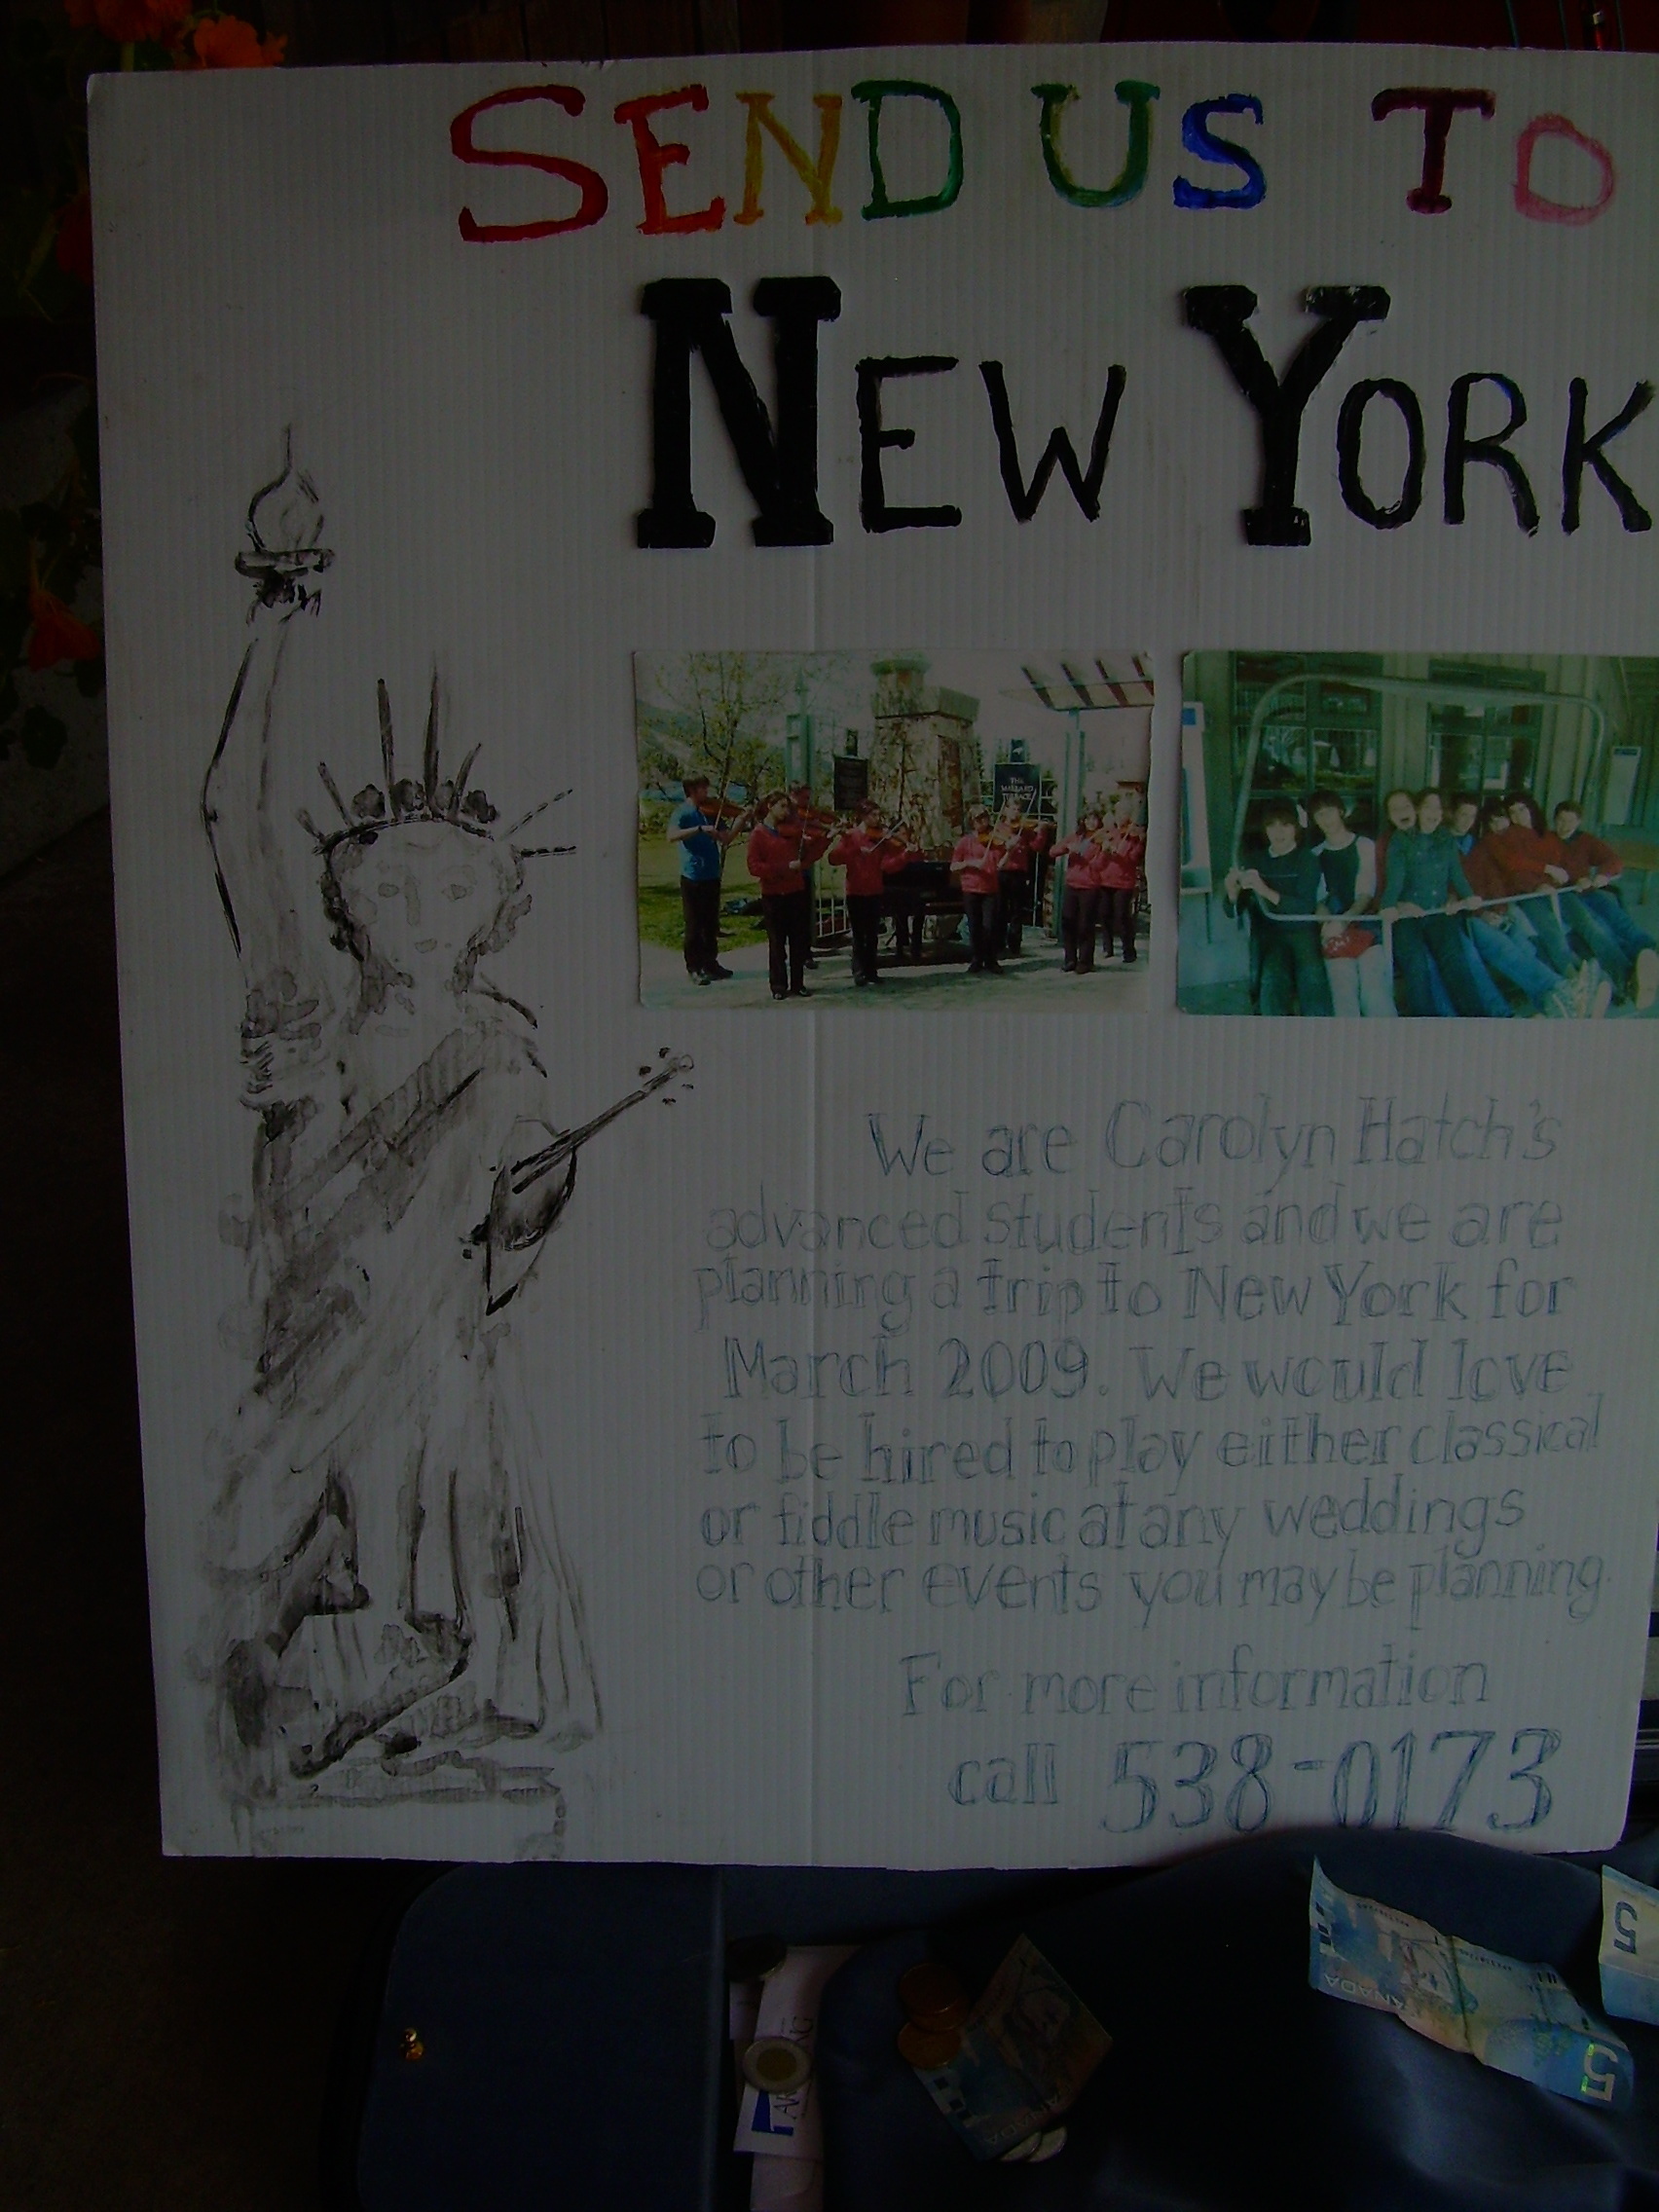 SEND US TO
NEW YORK
We are Carolyn Hatch's
advanced students and we are
planning a trip to New York for
March 2009. We would love
to be hired to play either classical
or fiddle music at any weddings
or other events you may be planning.
For more information
call 538-0173
CANADA
5
5
CANADA